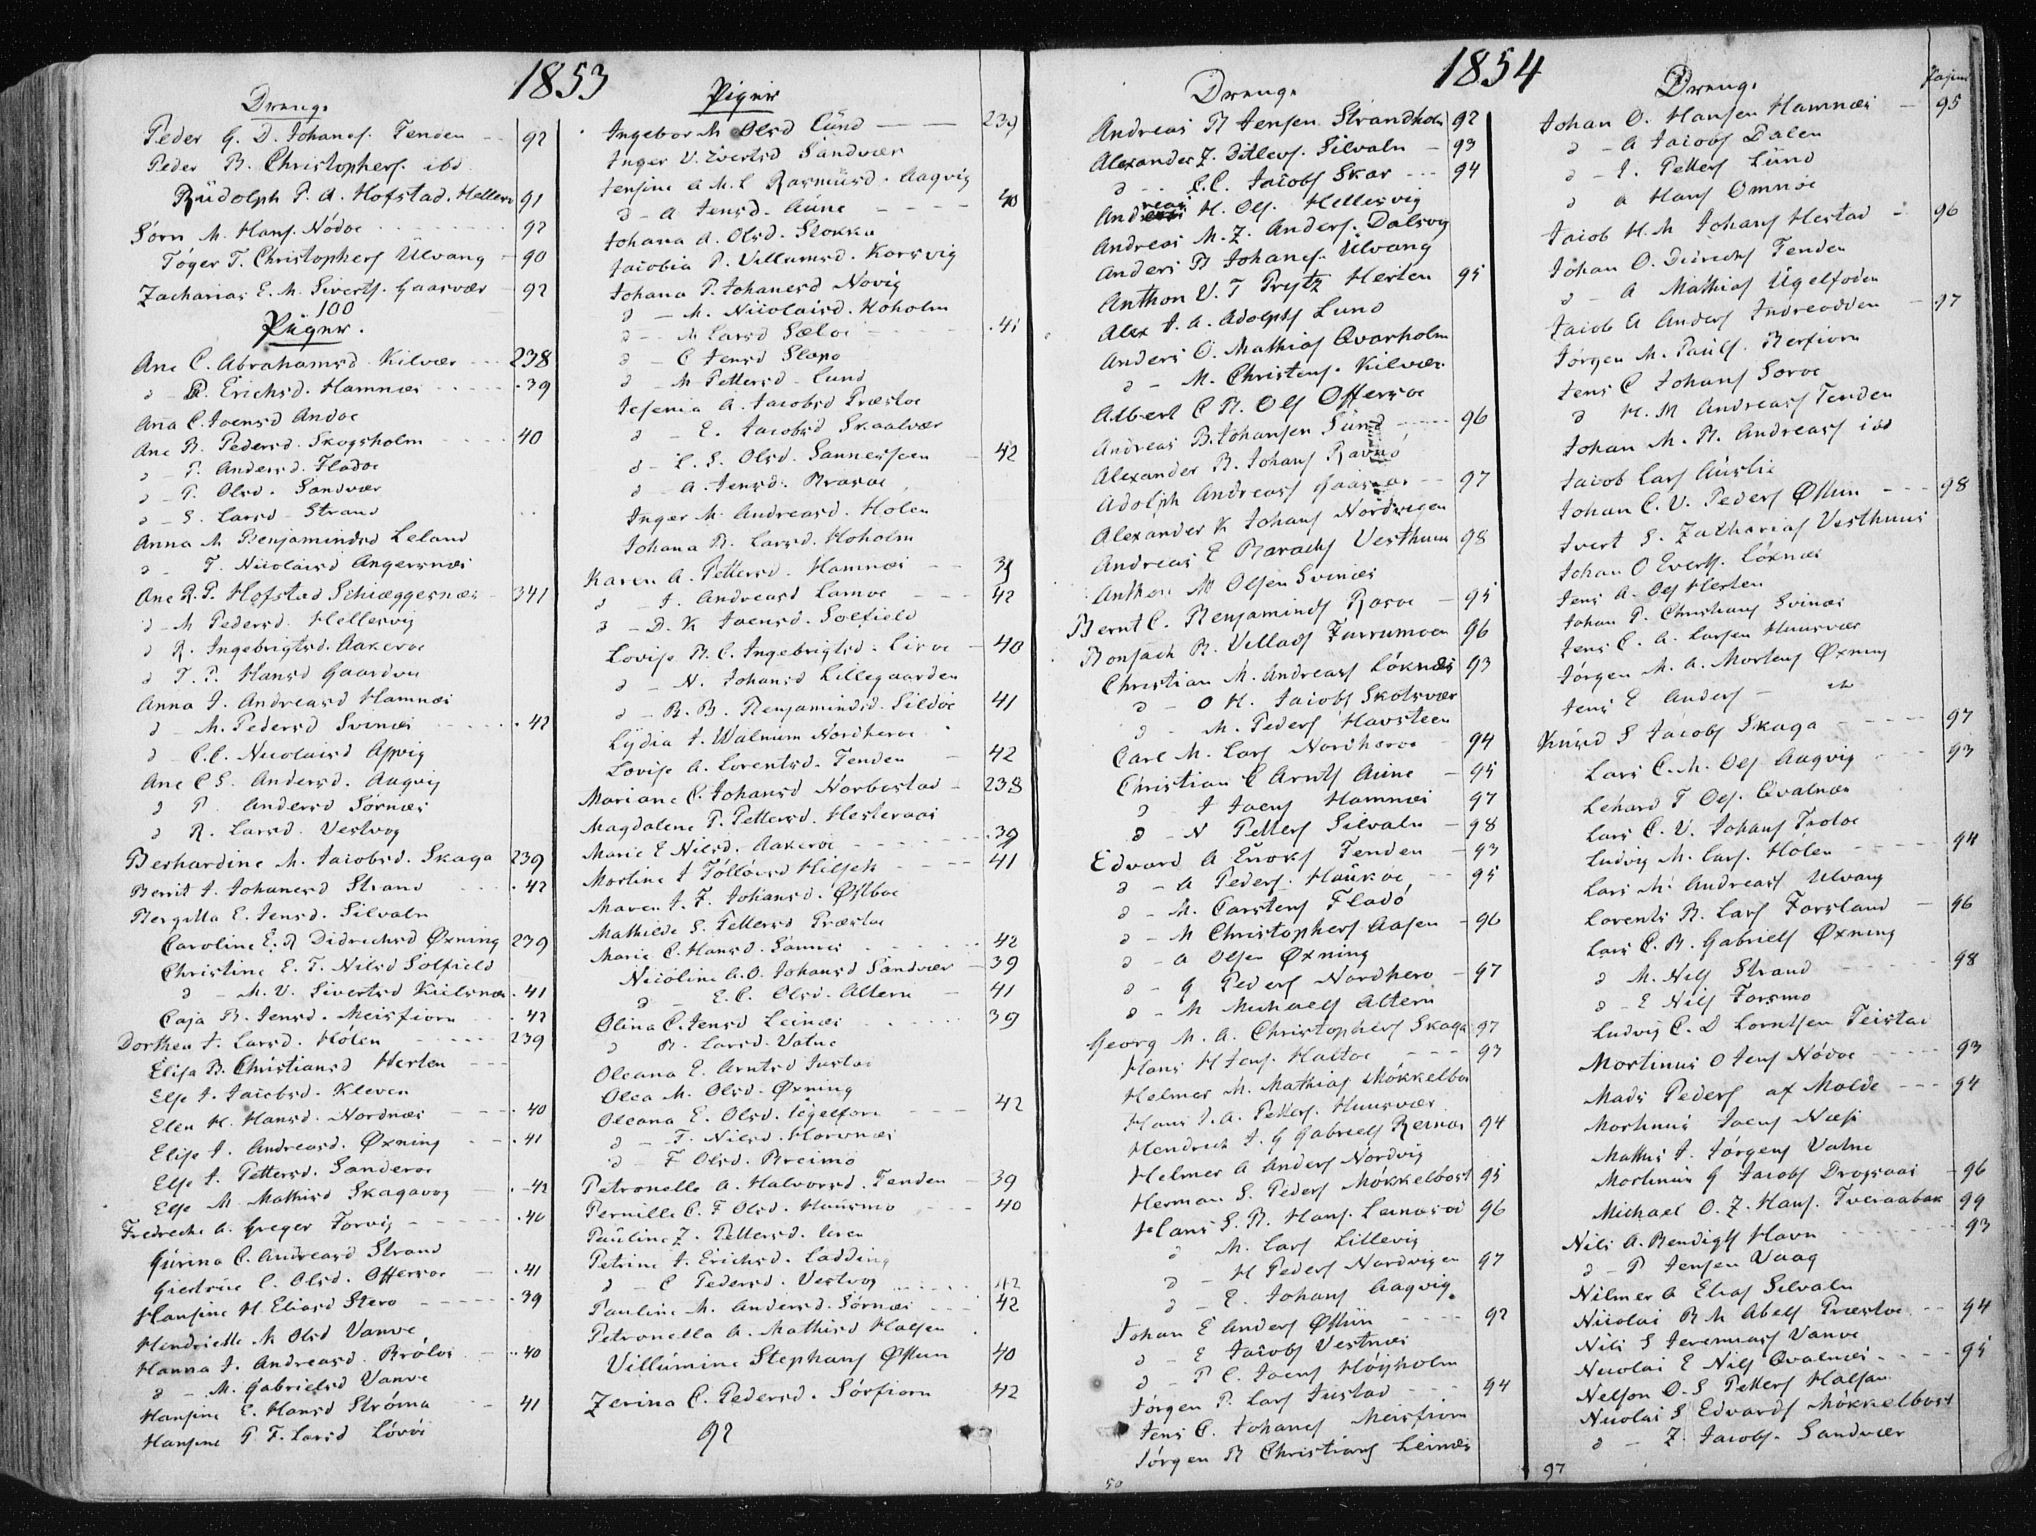 1853
Drenge
Peder G. D. Johans. Tenden -- 92
Peder B. Christophers. ibd.
Rüdolph P. A. Hofstad. Hellesv 91
Sørn M. Hans. Nódoe 92
Tóger T. Christophers Ülvang 90
Zacharias E. M. Siverts. Gaasvær 92
100
Piger.
Ane C. Abrahamsd. Kilvær -- 238
d - P. Erichsd. Hamnæs 39
Ana C. Joensd Andoe
Ane B. Pedersd. Skogsholm 40
d - P. Andersd. Fladoe
d - P. Olsd. Sandvær
d - S. Larsd. Strand
Anna M Benjamindsd Leland
d - T. Nicolaisd Angersnæs
Ane R. P. Hofstad Schiæggesnæs 341
d - M Pedersd. Hellesvig
d R. Ingebrigtsd. Aakeroe
d T. P. Hansd Gaarden
Anna J. Andreasd Hamnæs
d - M. Pedersd Svinæs 42
d - C. C. Nicolaisd Aspvig
Ane C S. Andersd. Aagvig
d P. Andersd Sörnæs
d R. Larsd. Vestvog
Berhardine M. Jacobsd. Skaga 239
Berrit J. Johanesd Strand 42
Bergitta E. Jensd. Silvaln
Caroline E. R Didrechsd Øxning 239
Christine E. T. Nilsd Solfield
d - M. V. Sivertsd Kiilsnæs 41
Caja B. Jensd. Meisfiorn 42
Dorthea J. Larsd. Hólen 239
Elisa B. Christiansd Herten
Else J. Jacobsd. Kleven
Elen H. Hansd. Nordnæs 40
Elise J. Andreasd. Øxning 41
Else J. Pettersd. Sanderoe
Else M. Mathisd Skagavog 42
Fredreche A. Greger Forvig 40
Gürina C. Andreasd Strand
Giertrüe C. Olsd. Offersoe 41
Hansine H. Eliasd Stero 39
Hendriette M Olsd Vanve
Hanna J. Andreasd. Brólos 40
d - M. Gabrielsd Vanve
Hansine E. Hansd Stróma 41
Hansine P. F. Larsd Lóvói
Piger
Ingebor M Olsd Lünd 239
Inger V. Evertsd Sandvær
Jensine A M. L Rasmüsd. Aagvig
d - A Jensd. Aüne 40
Johana A. Olsd. Slokka
Jacobia P. Villumsd. Korsvig
Johana P. Johanesd Novig
d - M. Nicolaisd. Hoholm
d - M Larsd Sæloe 41
d - C Jensd Slapo
d - M Pettersd. Lund
Jesenia A. Jacobsd Præstoe
d - E. Jacobsd Skaalvær
d - L. S. Olsd. Sannessoen 42
d - A. Jensd. Brasoe
Inger M. Andreasd. Holen
Johana B. Larsd. Hoholm
Karen A. Pettersd. Hamnæs 39
d - J. Andreasd Lamoe 42
d - D. K Joensd. Solfield
Lovise B. C. Ingebrigtsd. Liroe 40
d - N. Johansd Lillegaarden
d - B. B. Benjamindsd. Sildoe 41
Lÿdia J. Walnum Nordheroe
Lovise A. Lorentsd. Tenden 42
Mariane C. Johansd Nórbostad 238
Magdalene P. Pettersd. Hesteraas
Marie E Nilsd. Aakeroe 39
Mortine J Tólloisd Hilseth 41
Maren J. F. Johansd. Østboe
Mathilde S. Pettersd Præstoe
Marie C. Hansd. Sannes 42
Nicoline A. O. Johansd Sandvær 39
d - E. C. Olsd. Altern 41
Olina C. Jensd Leinæs 39
d B. Larsd. Vatne
Oleana E. Arntsd Justad
Olea M. Olsd. Øxning
Oleana E. Olsd. Ügelfore 42
d - T. Nilsd. Horvnæs
d - F Olsd. Breimo
Petronelle A. Halvorsd. Tenden 39
Pernille C. F Olsd. Haüsmo 40
Paüline Z. Pettersd. Uren
Petrine J. Erichsd. Ladding
d - C Pedersd. Vestvog 42
Pauline M. Andersd. Sórnæs 42
Petronella A. Mathisd Halsen
Villümine Stephans Østun 40
Zerina C. Pedersd. Sórfiorn 42
92
1854
Drenge
Andreas B Jensen Strandholm 92
Alexander Z. Ditlevs. Silvaln 93
d - - C. C. Jacobs Skar 94
Andreas H. Ols. Hellesvig
Andreas M. Z. Anders. Dalsvog
Anders B Johans. Ülvang
Anthon V. T Prytz Herten 95
Alex J. A. Adolphs Lund
Anders O. Mathias Qvarholm
d - M. Christens. Kilvær
Albert C B. Ols Offersoe
Andreas B. Johansen Sünd 96
Alexander B. Johans Ravnó
Adolph Andreass Gaasvær 97
Alexander K Johans Nórdvigen
Andreas E Barachs Vesthuus 98
Anthon M Olsen Svinæs
Bernt C. Benjaminds Basoe 95
Bonsach B. Villads Farrumoen 96
Christian M. Andreass Lóknæs 93
d - O H. Jacobs Skotsvær
d - M. Peders Havsteen
Carl M. Lars Nordheroe 94
Christian C Arnts Aüne 95
d J Joens Hamnæs 97
d - N Petters Silvaln 98
Edvard A Enoks Tenden 93
d - A Peders. Haükoe 95
d - M. Carstens Fladó
d - M Christophers Aasen 96
d - A Olsen Øxning
d - G Peders Nordhero 97
d - M Michaels Altern
Georg M. A. Christophers Skaga 97
Hans H Jens. Haltoe 93
Helmer M. Mathias Mókkelbos
Hans J. A. Petters. Huusvær
Hendrich J. G Gabriels Reines 94
Helmer A Anders Nordvig
Herman S. Peders Mókkelbost 95
Hans S. B. Hans. Leinesoe 96
d M. Lars Lillevig
d - H Peders Nordvigen 97
d - E. Johans Aagvig.
Johan E Anders Østün 92
d - E Jacobs Vestnæs
d - P C. Joens Hóÿholm
Jórgen P. Lars Justad 94
Jens C. Johans Meisfiorn
Jórgen B Christians Leinæs
50
Drenge
Pagina
Johan O. Hansen Hamnæs 95
d - A Jacobs Dalen
d - J. Petters Lünd
d A Hans Omnöe
Jacob H. M Johans Hestad 96
Johan O. Didrechs Tenden
d - A Mathias Ügelfoden
Jacob A Anders Indreodden 97
Jørgen M. Pauls. Berfiorn
Jens C Johans Soroe
d H. M Andreass Tenden
Johan M. B. Andreass ibd
Jacob Lars Auslie
Johan C. V. Peders Østun 98
Ivert S. Zacharias Vesthuus
Johan O Everts. Lóxnæs
Jens A. Ols Herten
Johan P. Christians Svinæs
Jens C. A. Larsen Huusvær
Jørgen M. A. Mortens Øxning
Jens E Anders
Knüd S Jacobs Skaga 97
Lars C. M. Ols Aagvig 93
Lehard T Ols. Qvalnæs
Lars C. V. Johans Troloe
Ludvig M. Lars. Holen 94
Lars M. Andreass Ulvang
Lorents B. Lars Forsland 96
Lars C. B. Gabriels Øxning
d M. Nils Strand 98
d - E Nils Forsmo
Ludvig C. D Lorntsen Teistad
Mortinus O Jens Nódoe 93
Mads Peders af Molde 94
Mortinus Joens Næss
Mathis J. Jórgens Vatne
Mortinus G Jacobs Drogsaas 96
Michael O. Z. Hans. Tveraabak 99
Nils A. Bendigts Havn 93
d - P Jensen Vaag
Nilmer A Elias Silvaln
Nicolai B M Abels Præstoe 94
Nils S Jeremias Vanve
Nicolai E Nils Qvalnæs 95
Nelson O. S Petters Halsan
Nicolai S Edvards Mókkelbost
d - Z. Jacobs. Sandvær
97